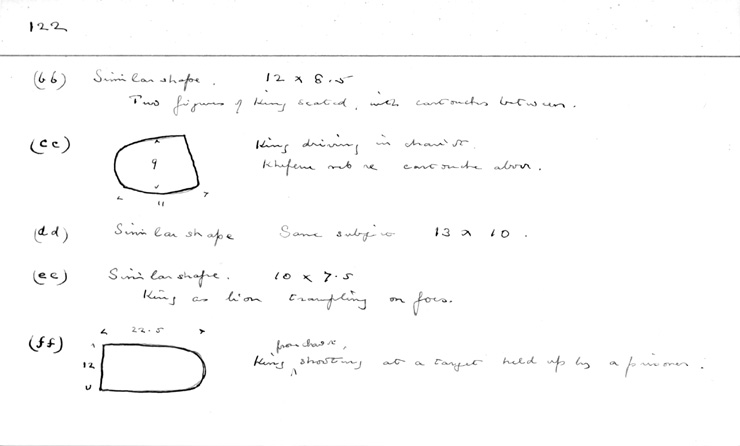 122
(bb) Similar shape. 12 x 8.5
Two figures of King seated, with cartouches between.
(cc) King driving in chariot.
9
Kheperu neb re cartouche above.
11
(dd) Similar shape Same subject 13 x 10.
(ee) Similar shape. 10 x 7.5
King as lion trampling on foes.
22.5
(ff) from chariot,
12 King ^ shooting at a target held up by a prisoner.